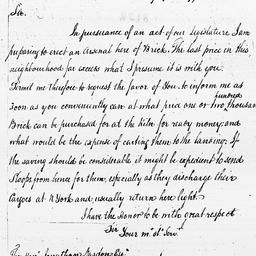 Sir.
In pursuance of an act of our Legislature I am
preparing to erect an Arsenal here of Brick. The last price in this
neighbourhood far exceeds what I presume it is with you.
Permit me therefore to request the favor of You to inform me as
hundred
soon as you conveniently can at what price one or two thousand
Brick can be purchased for at the Kiln for ready money and
what would be the expense of carting them to the landing; If
the saving should be considerable it might be expedient to send
Sloops from hence for them, especially as they discharge their
Cargoes at N York and usually return here light.
I have the Honor to be with great respect
Sir Your mo. ob. Serv.
The Honl Jonathan